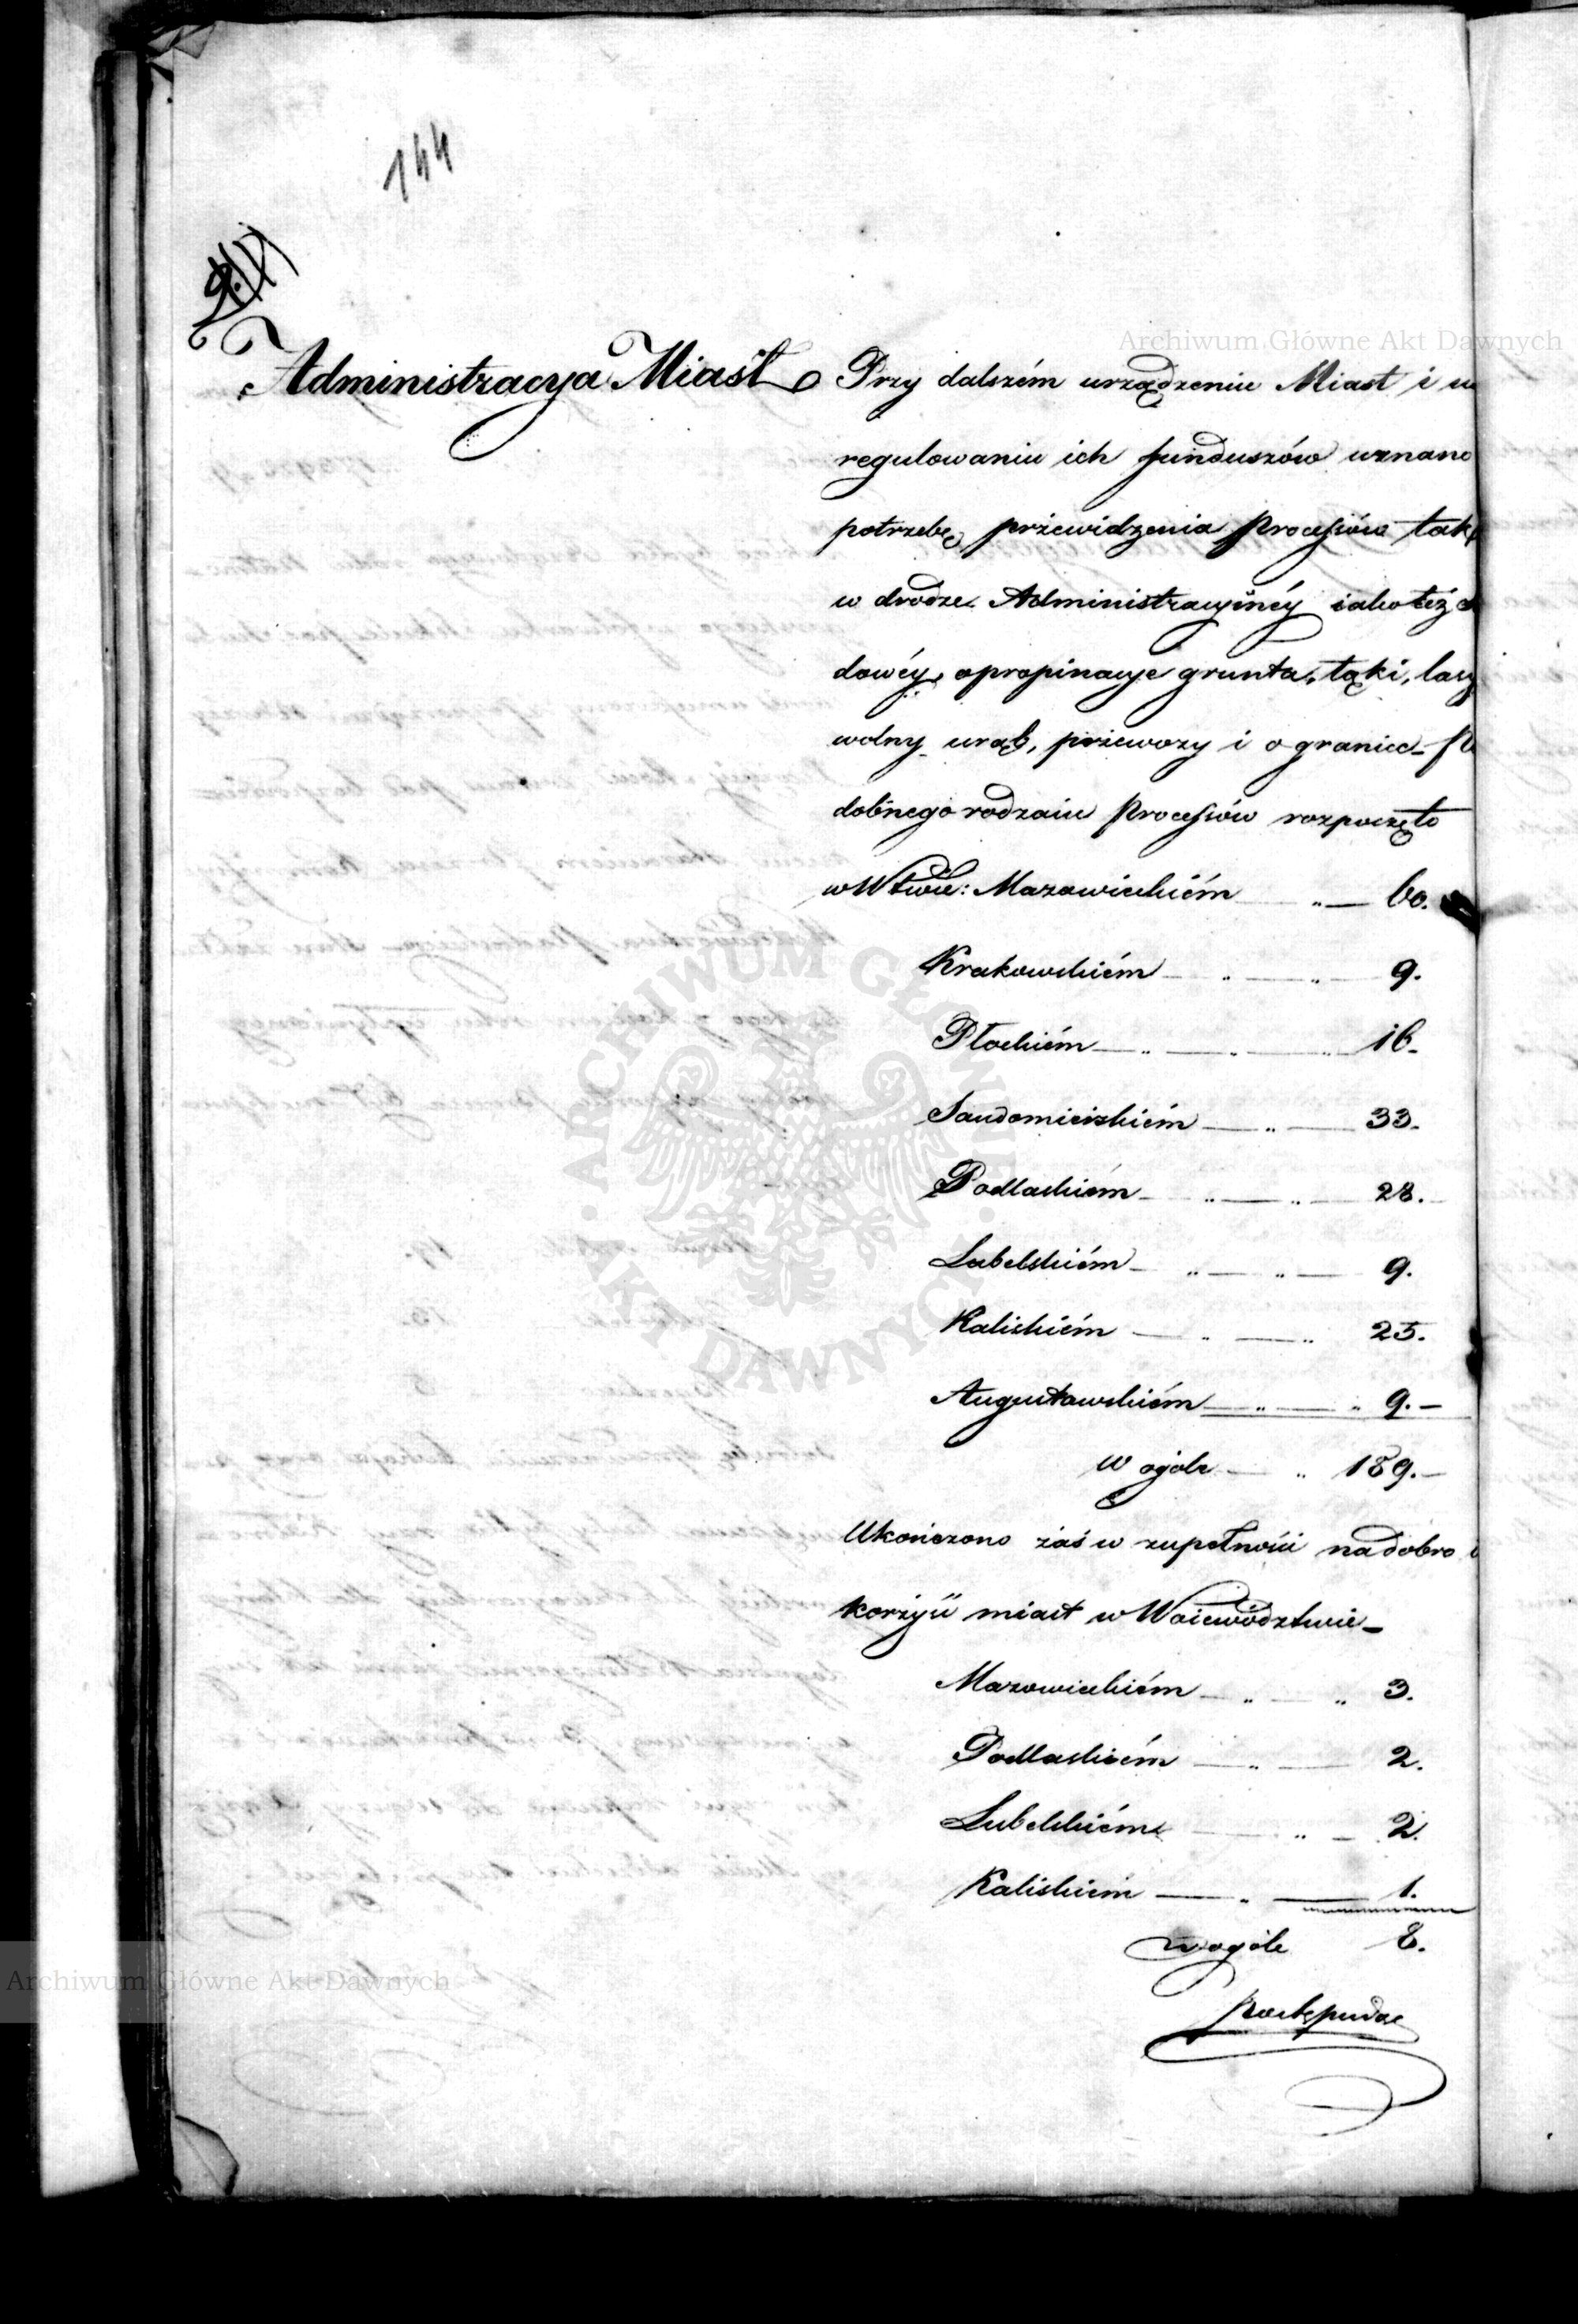 144
Administracya Miast
Przy dalszém urządzeniu Miast i u
regulowaniu ich funduszów uznano
potrzebę przewidzenia Processów tak
w drodze Administracyinéy iako też
dowéy, o propinacye grunta, łąki, lasy
wolny urąb, przewozy i o granice_ Po
dobnego rodzaiu Processów rozpoczęto
w Wtwie: Mazowieckiém " — 60.
Krakowskiém — " — " 9.
Płockiém — " — " — " 16.
Sandomierskiém — " — 33.
Podlaskiém — " — " — 28.
Lubelskiém — " — " — 9.
Kaliskiém — " — " 25.
Augustowskiém — " — " 9.—
w ogóle — " 189.—
Ukończono zaś w zupełności na dobro i
korzyść miast w Woiewództwie_
Mazowieckiém — " — " 3.
Podlaskiém — " — 2.
Lubelskiém — " — 2.
Kaliskiém — " — 1.
w ogóle 8.
Archiwum Główne Akt Dawnych
Archiwum Główne Akt Dawnych
· ARCHIWUM GŁÓWNE · AKT DAWNYCH